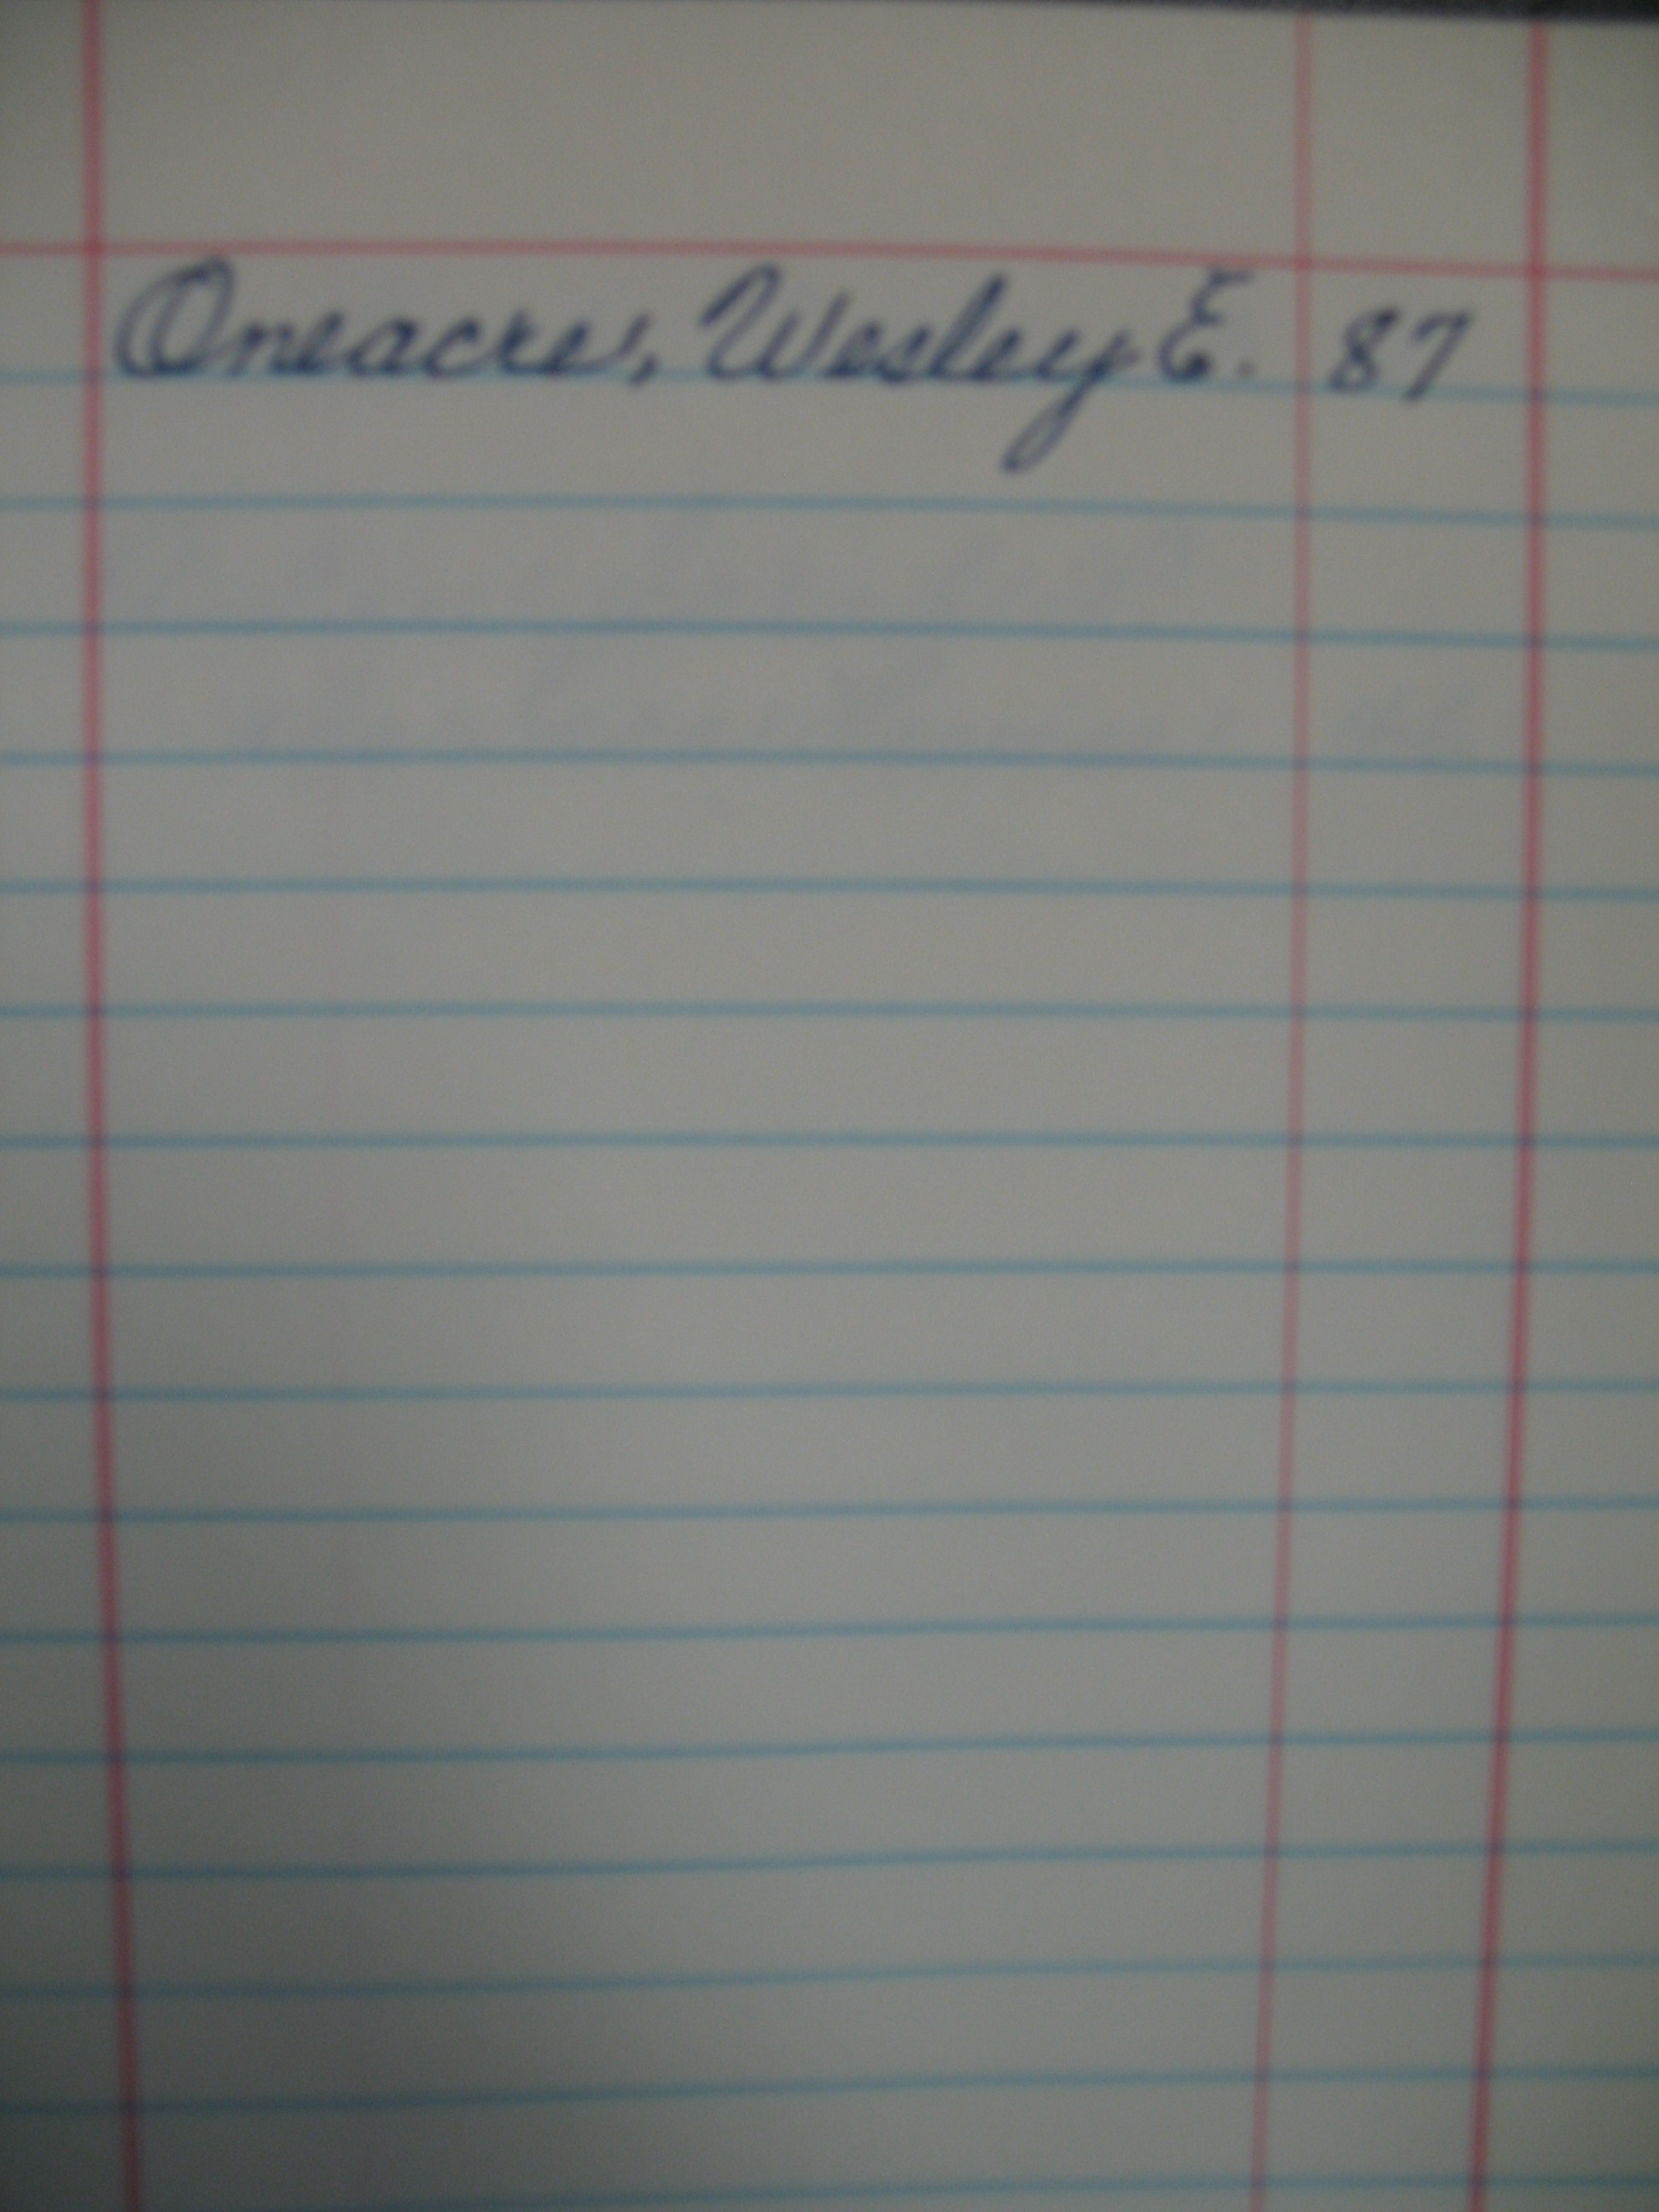 Oneacre, Wesley E. 87